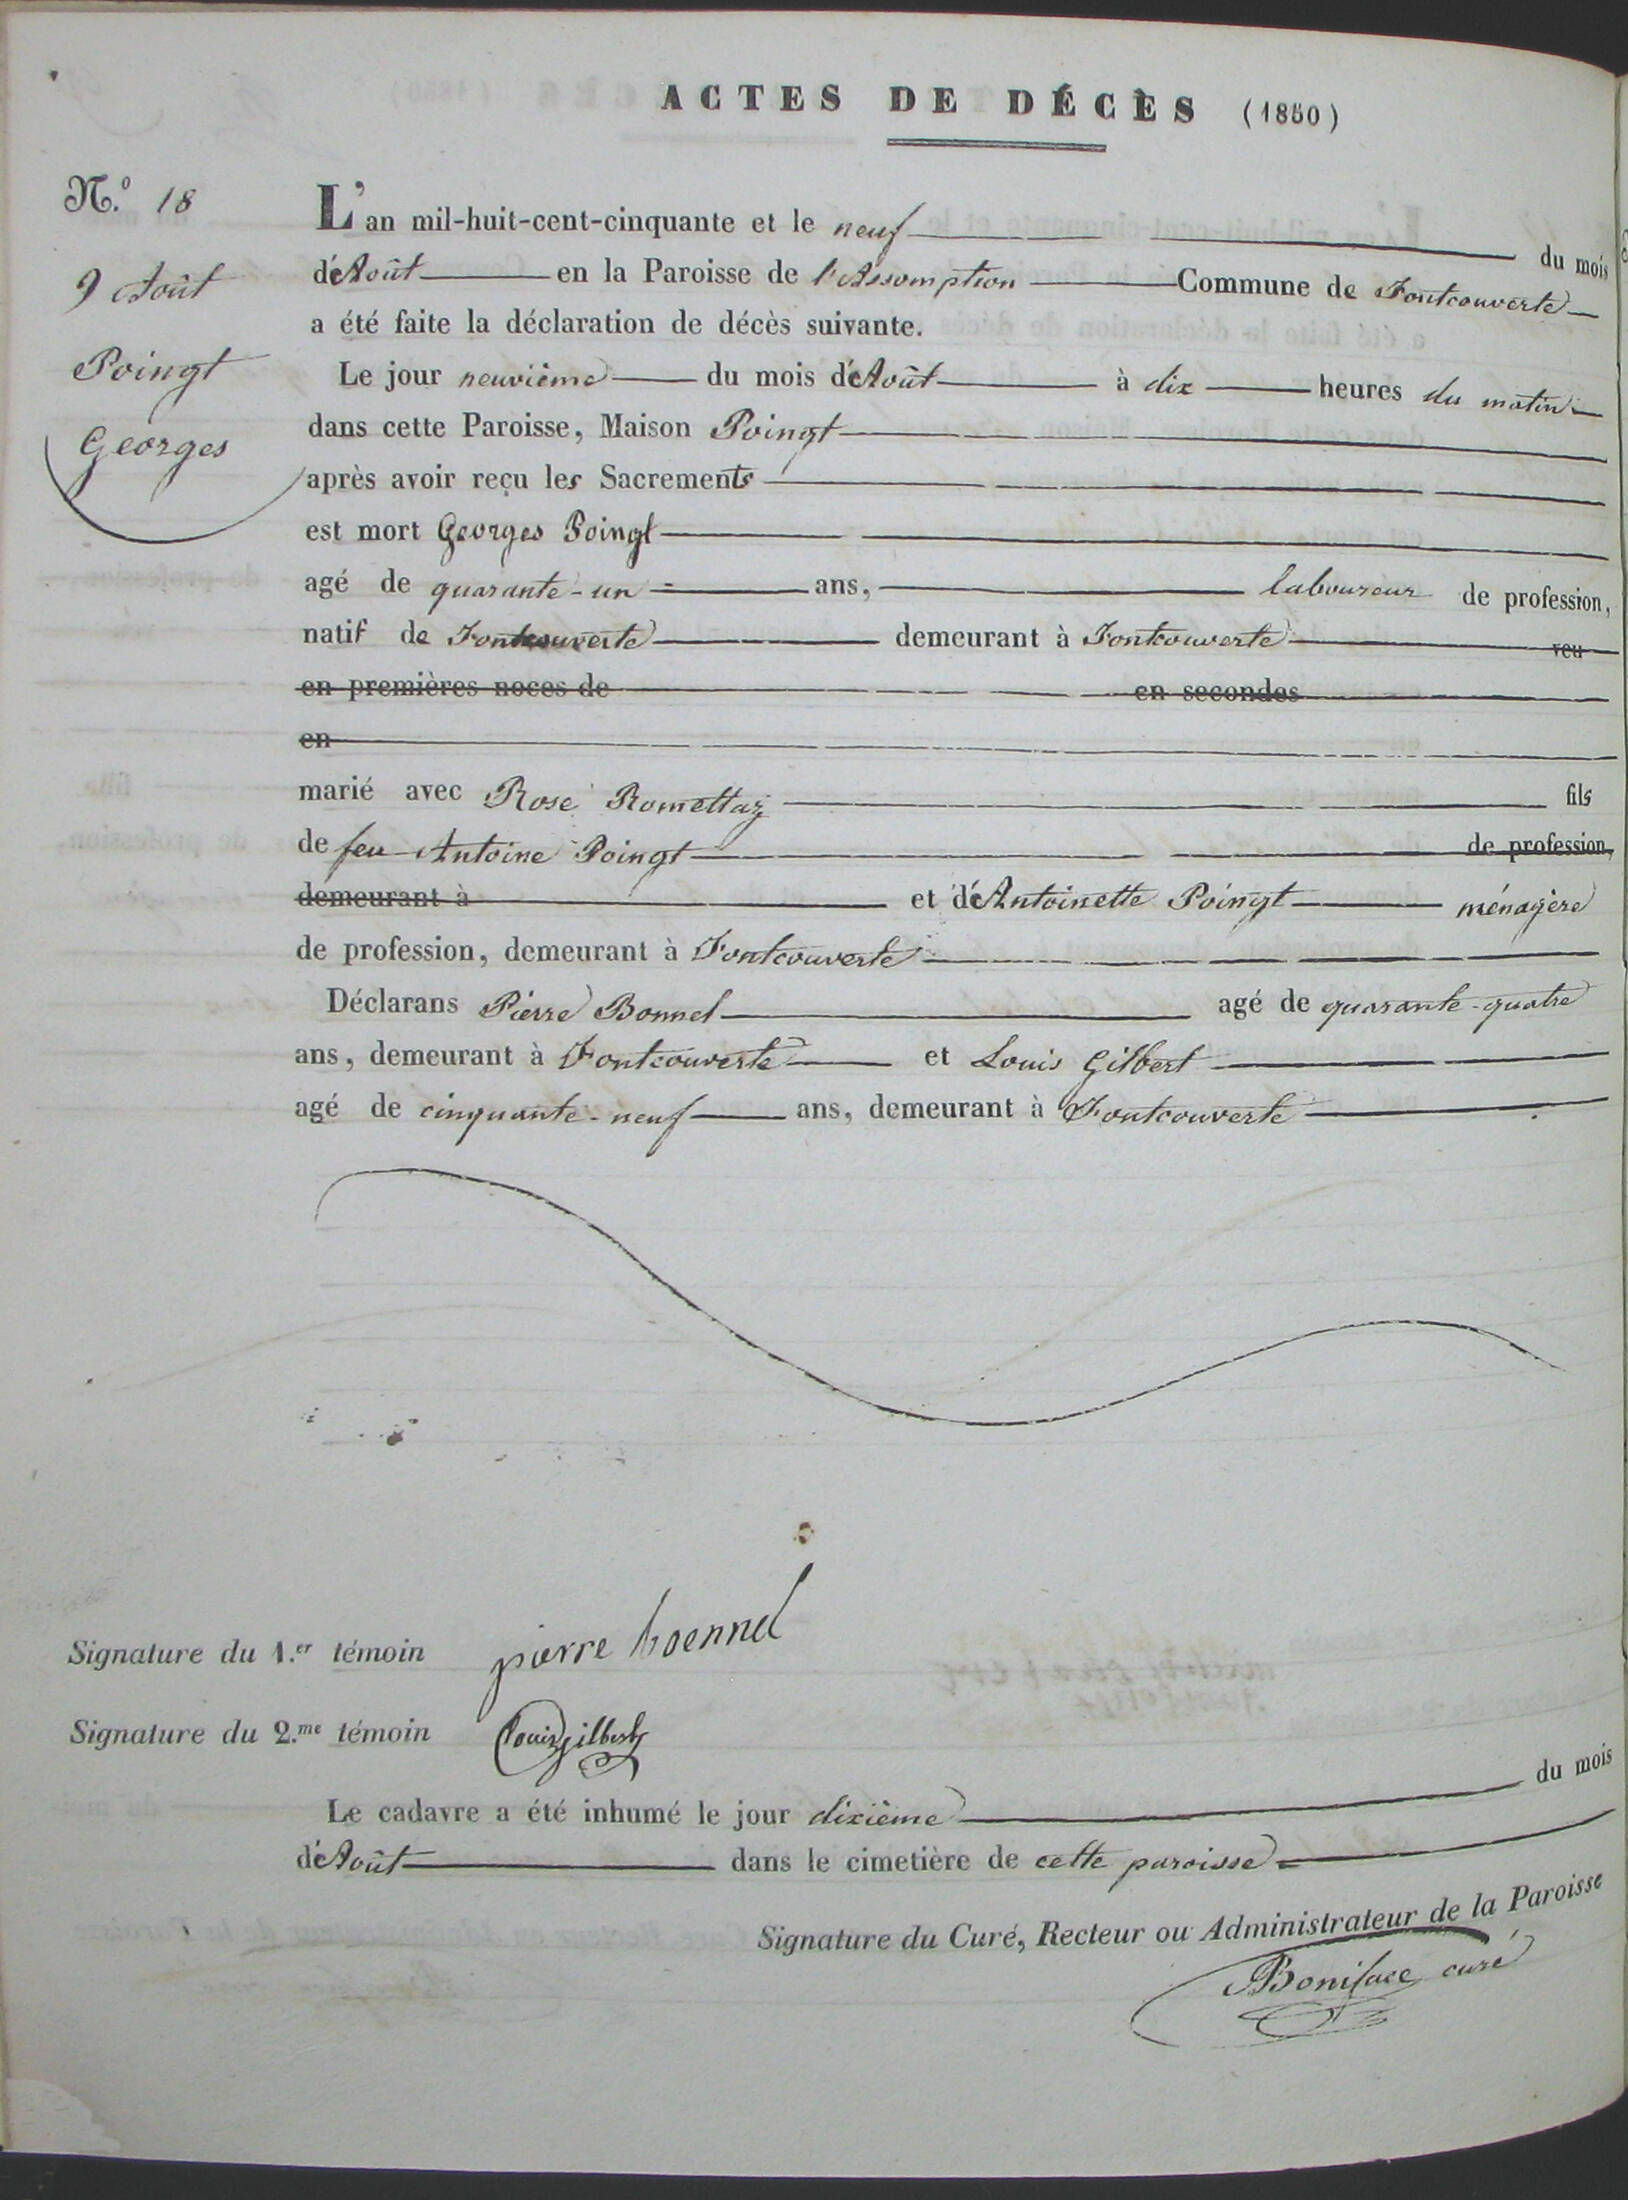 ACTES DE DÉCÈS (1850)
N.º 18
9 Août
Poingt
Georges
L'an mil-huit-cent-cinquante et le neuf du mois
d'Août en la Paroisse de l'Assomption Commune de Fontcouverte
a été faite la déclaration de décès suivante.
Le jour neuvième du mois d'Août à dix heures du matin
dans cette Paroisse, Maison Poingt
après avoir reçu les Sacrements
est mort Georges Poingt
agé de quarante-un ans, laboureur de profession,
natif de Fontcouverte demeurant à Fontcouverte veu
en premières noces de en secondes
en
marié avec Rose Romettaz fils
de feu Antoine Poingt de profession,
demeurant à et d'Antoinette Poingt ménagère
de profession, demeurant à Fontcouverte
Déclarans Pierre Bonnel agé de quarante-quatre
ans, demeurant à Fontcouverte et Louis Gilbert
agé de cinquante-neuf ans, demeurant à Fontcouverte
Signature du 1.er témoin pierre boennel
Signature du 2.me témoin Louis gilbert
Le cadavre a été inhumé le jour dixième du mois
d'Août dans le cimetière de cette paroisse
Signature du Curé, Recteur ou Administrateur de la Paroisse
Boniface curé